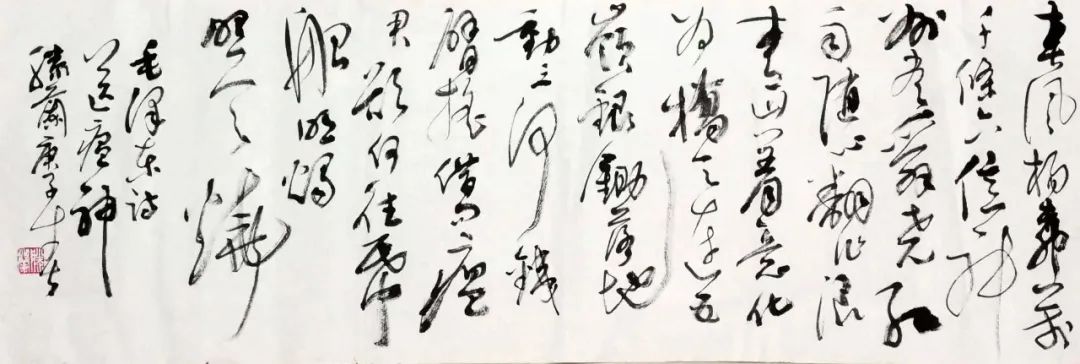 春風楊柳萬
千條六億神
州盡舜堯紅
雨隨心翻作浪
青山着意化
為橋天連五
嶺銀鋤落地
動三河鐵
臂搖借問瘟
君欲何往帋
船明燭
照天燒
毛澤東詩
送瘟神
庚子